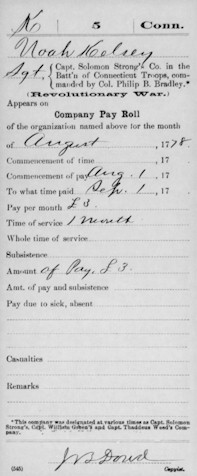 K | 5 | Conn.
Noah Kelsey
Sgt, { Capt. Solomon Strong's Co. in the
Batt'n of Connecticut Troops, com-
manded by Col. Philip B. Bradley.*
(Revolutionary War.)
Appears on
Company Pay Roll
of the organization named above for the month
of August, 1778.
Commencement of time, 17
Commencement of pay Aug. 1, 17
To what time paid Sep. 1, 17
Per pay month £3.
Time of service 1 Month
Whole time of service
Subsistence
Amount of Pay. £3.
Amt. of pay and subsistence
Pay due to sick, absent
Casualties
Remarks
*This company was designated at various times as Capt. Solomon
Strong's, Capt. Green's and Capt. Thaddeus Weed's Com-
pany.
J B Dowd
(545) Copyist.